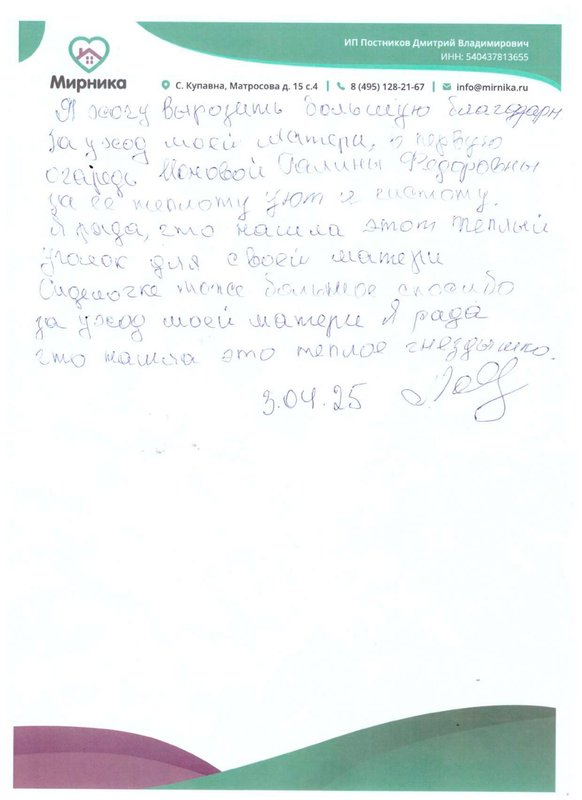 ИП Постников Дмитрий Владимирович
ИНН: 540437813655
Мирника
С. Купавна, Матросова д. 15 с.4 | 8 (495) 128-21-67 | info@mirnika.ru
Я хочу выразить большую благодарн
За уход моей матери, в первую
очередь Галины Федоровны
за её теплоту уют и чистоту.
Я рада, что нашла этот тёплый
уголок для своей матери
Сиделочке тоже большое спасибо
за уход моей матери Я рада
что нашла это теплое гнездышко.
3.04.25